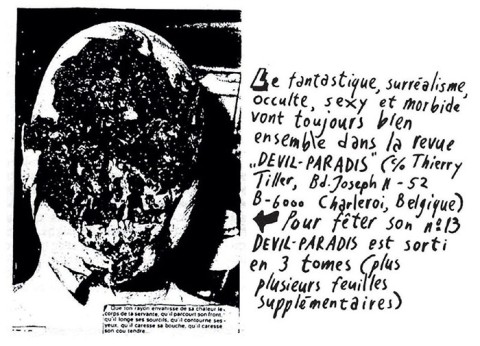 Le fantastique, surréalisme,
occulte, sexy et morbide
vont toujours bien
ensemble dans la revue
„DEVIL-PARADIS" (c/o Thierry
Tiller, Bd. Joseph II - 52
B-6000 Charleroi, Belgique)
Pour fêter son n°13
DEVIL-PARADIS est sorti
en 3 tomes (plus
plusieurs feuilles
supplémentaires)
Que ton rayon envahisse de sa chaleur le
corps de la servante, qu'il parcourt son front,
qu'il longe ses sourcils, qu'il contourne ses
yeux, qu'il caresse sa bouche, qu'il caresse
son cou tendre...